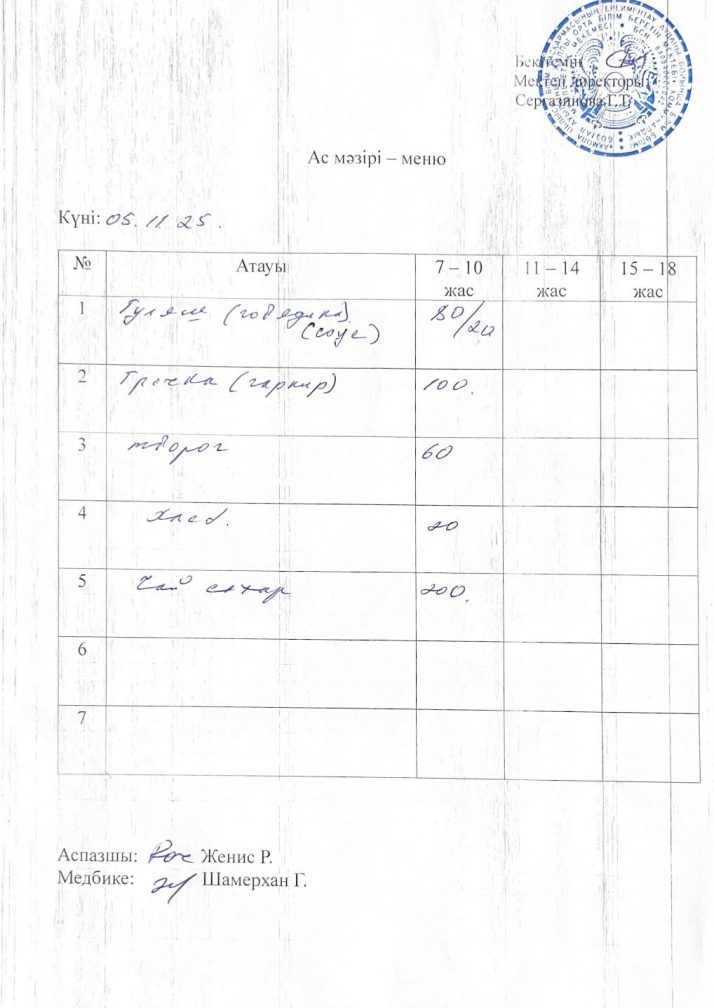 Бекітемін
Мектеп директоры
Сергазинова Г.Т.
Ас мәзірі – меню
Күні: 05. 11 25.
№ Атауы 7 – 10 жас 11 – 14 жас 15 – 18 жас
1 Гуляш (говядина) (соус) 80/20
2 Гречка (гарнир) 100.
3 творог 60
4 хлеб. 20
5 Чай сахар 200.
6
7
Аспазшы: Женис Р.
Медбике: Шамерхан Г.